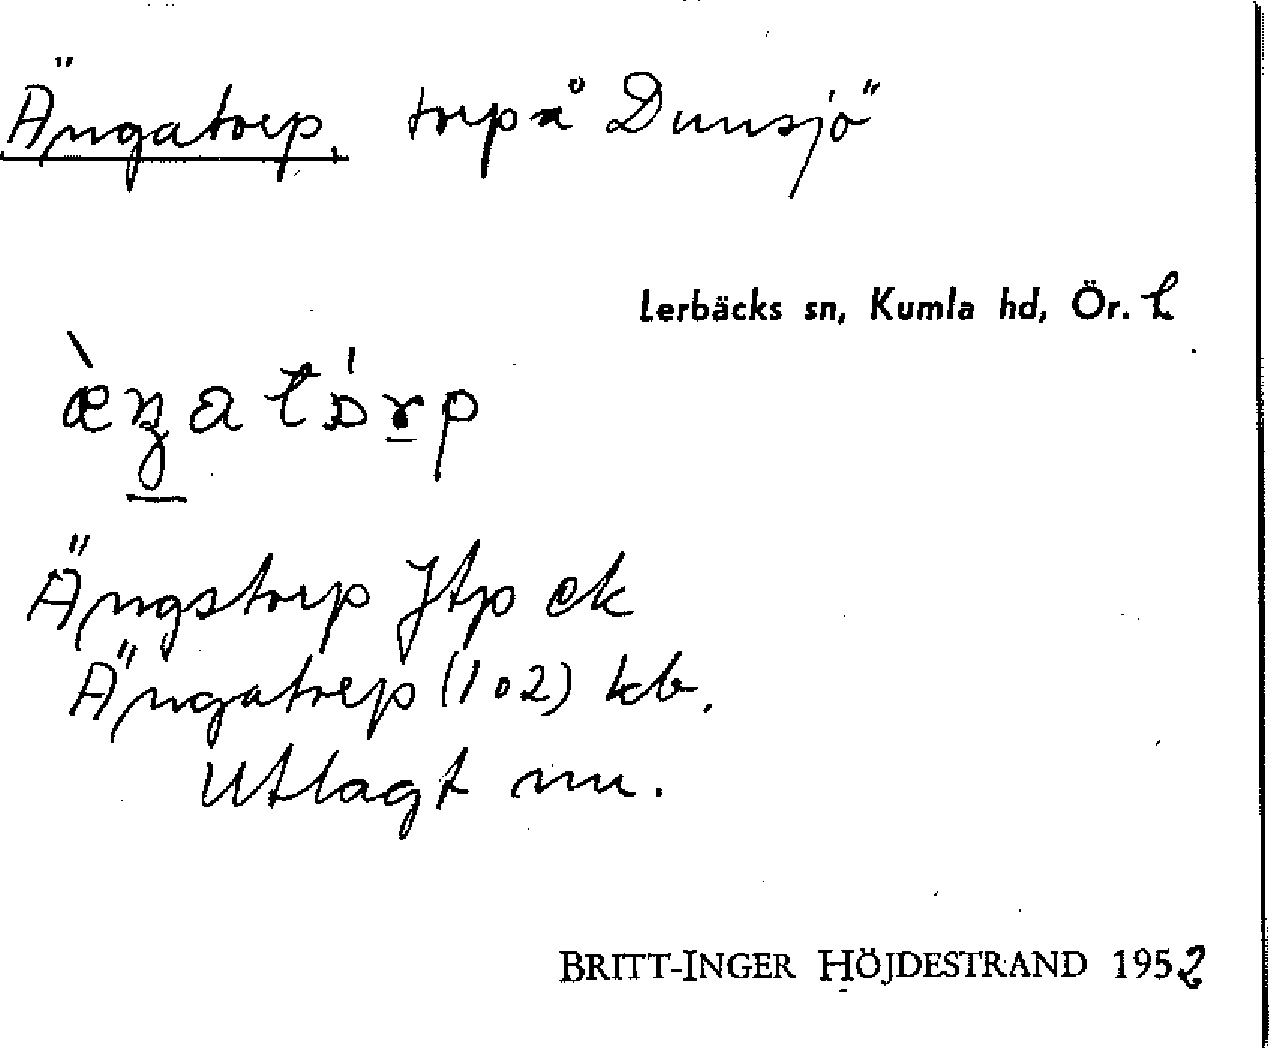 Ängatorp, torp å Dunsjö
Lerbäcks sn, Kumla hd, Ör. l
Ängstorp Jtp ek
Ängatorp (1 o 2) kb.
Utlagt nu.
BRITT-INGER HÖJDESTRAND 1952